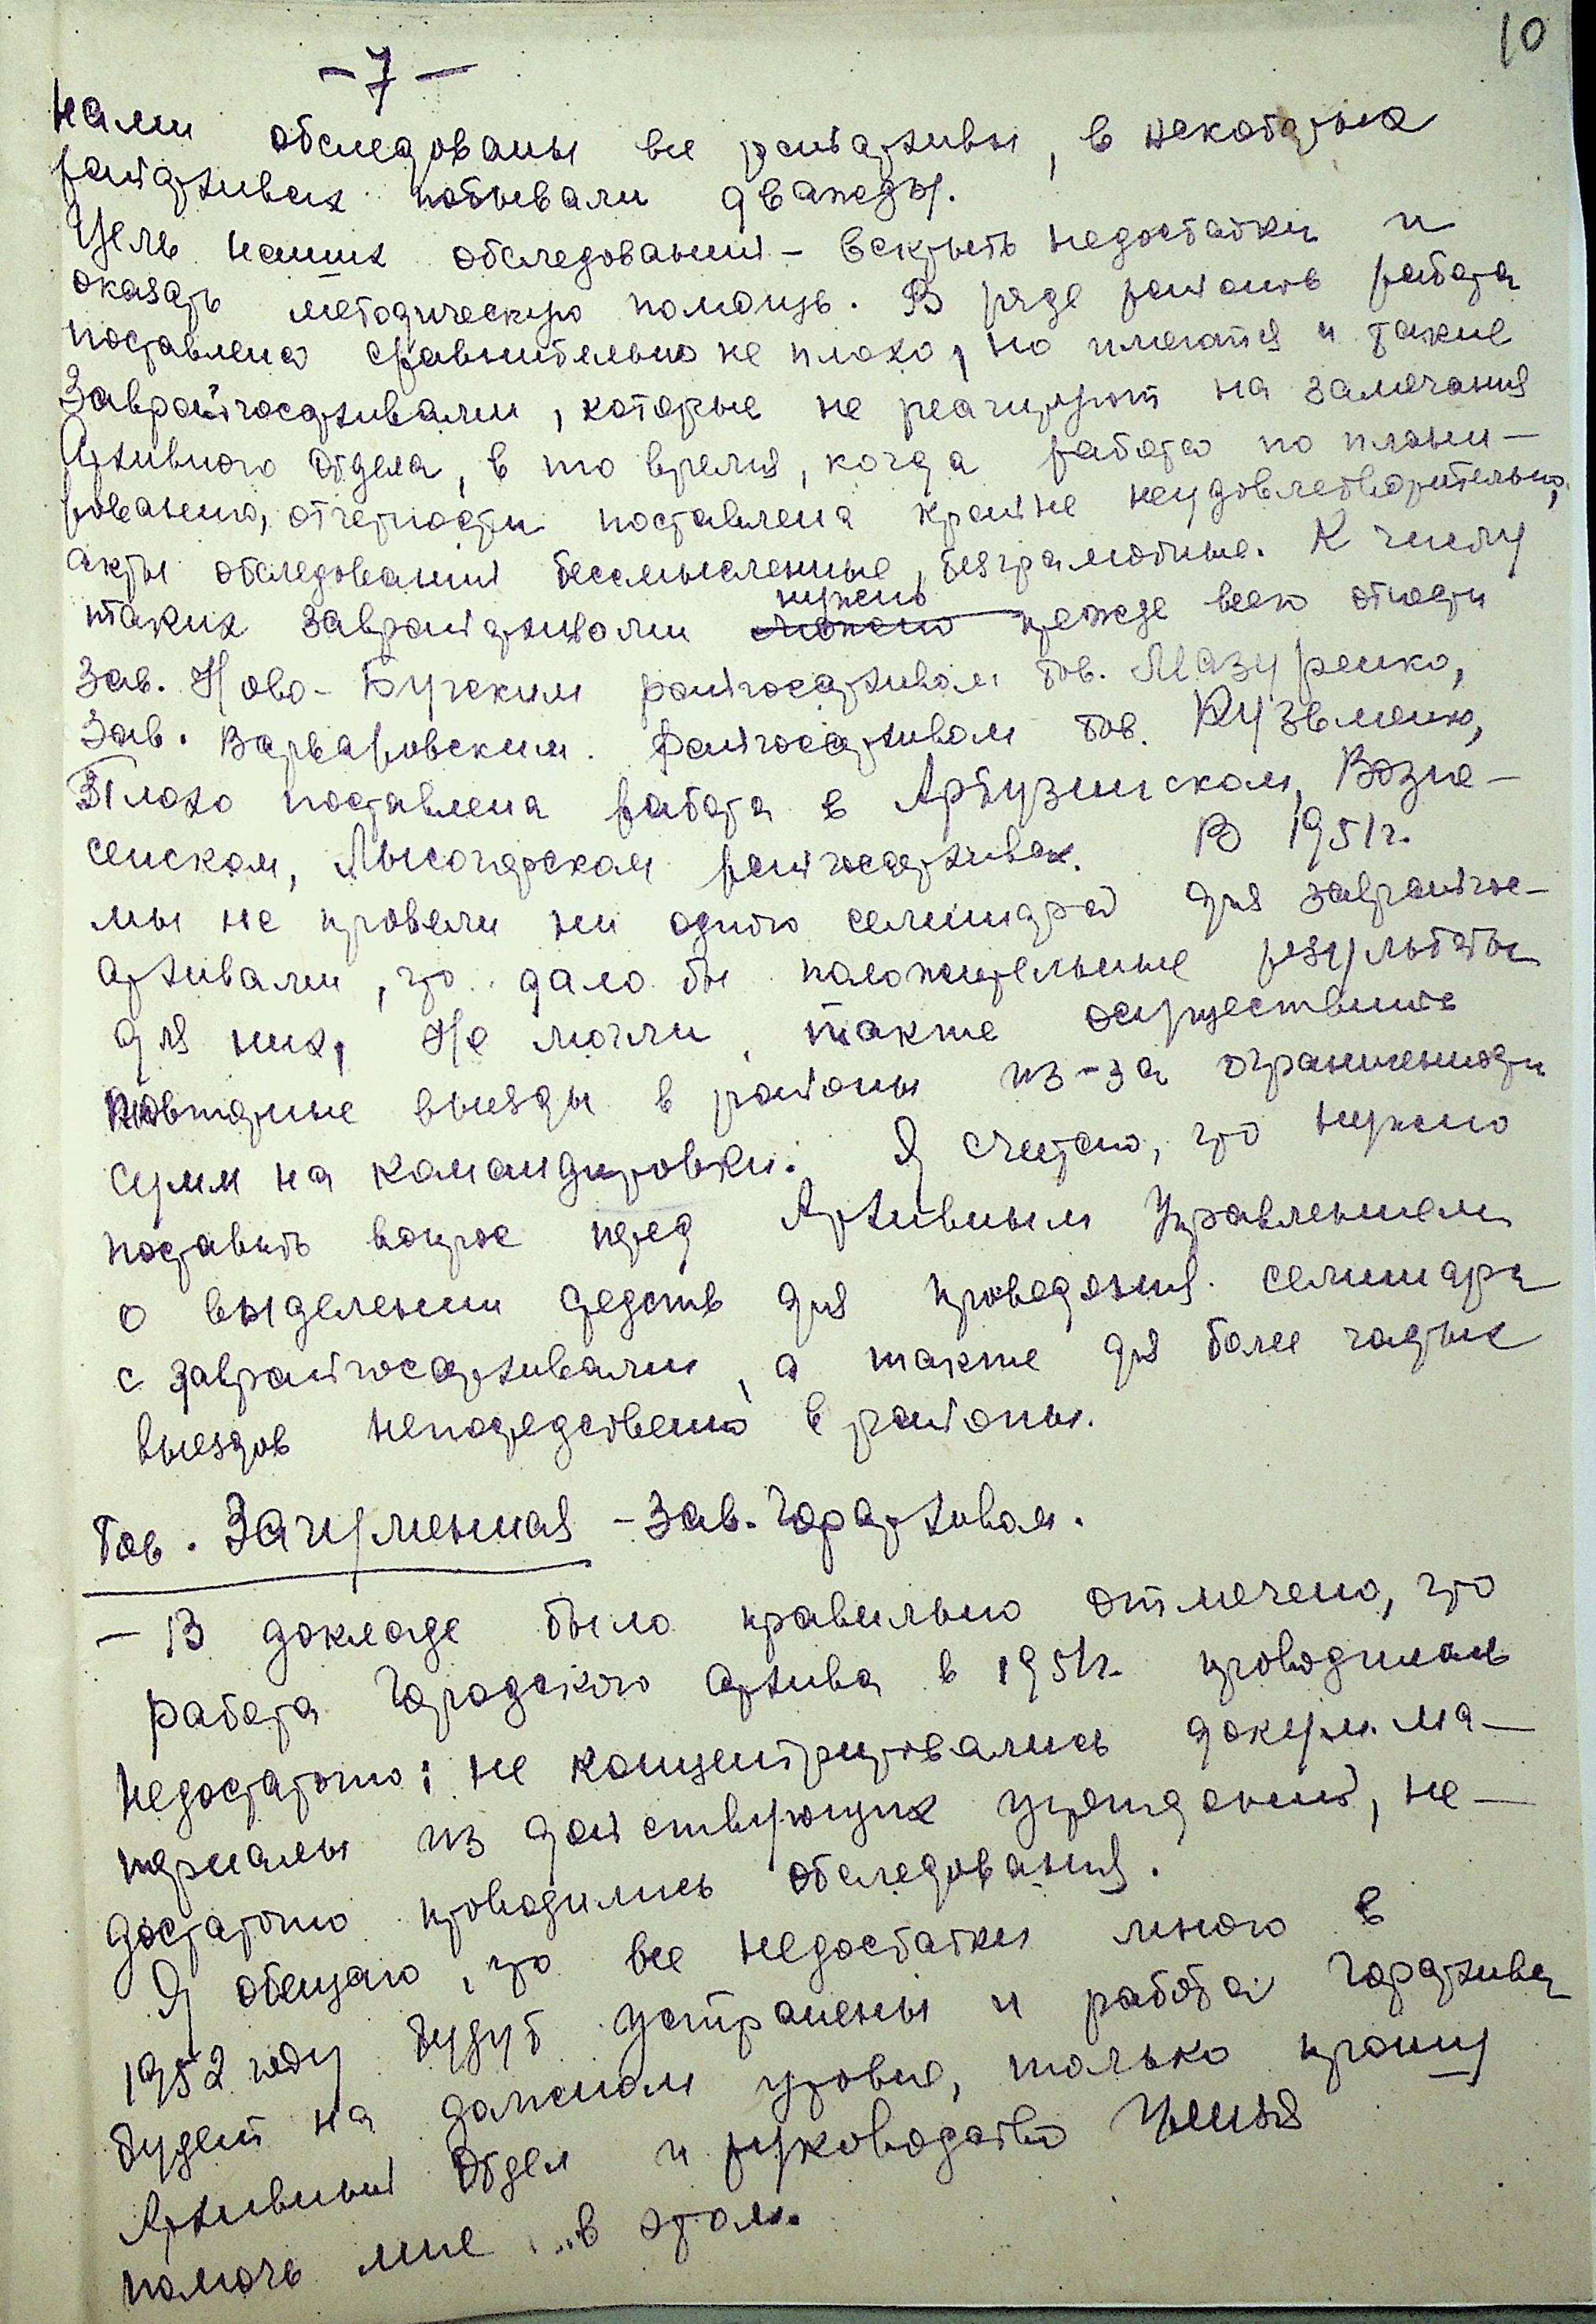 10
-7-
нами обследованы все райархивы, в некоторых
райархивах побывали дважды.
Цель наших обследований - вскрыть недостатки и
оказать методическую помощь. В ряде районов работа
поставлена сравнительно не плохо, но имеются и такие
Заврайгосархивами, которые не реагируют на замечания
Архивного отдела, в то время, когда работа по плани-
рованию, отчетности поставлена крайне неудовлетворительно,
акты обследований бессмысленные, безграмотные. К числу
нужно
таких заврайархивами можно прежде всего отнести
Зав. Ново-Бугским райгосархивом тов. Мазуренко,
Зав. Варваровским райгосархивом тов. Кузьменко,
Плохо поставлена работа в Арбузинском, Возне-
сенском, Лысогорском райгосархивах. В 1951г.
мы не провели ни одного семинара для заврайгос-
архивами, что дало бы положительные результаты
для них, Не могли также осуществить
повторные выезды в районы из-за ограниченности
сумм на командировки. Я считаю, что нужно
поставить вопрос перед Архивным Управлением
о выделении средств для проведения семинара
с заврайгосархивами, а также для более частых
выездов непосредственно в районы.
Тов. Загуменная - Зав. Горархивом.
- В докладе было правильно отмечено, что
работа Городского архива в 1951г. проводилась
недостаточно: не концентрировались докум. ма-
териалы из действующих учреждений, не-
достаточно проводились обследования.
Я обещаю, что все недостатки мною в
1952 году будут устранены и работа Горархива
будет на должном уровне, только прошу
Архивный Отдел и руководство
помочь мне в этом.